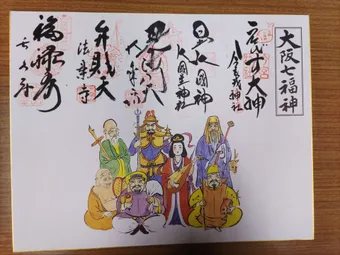 大阪七福神
大神
今宮戎神社
大国神
大国主神社
毘沙門天
大乗坊
弁財天
法案寺
福禄寿
長久寺